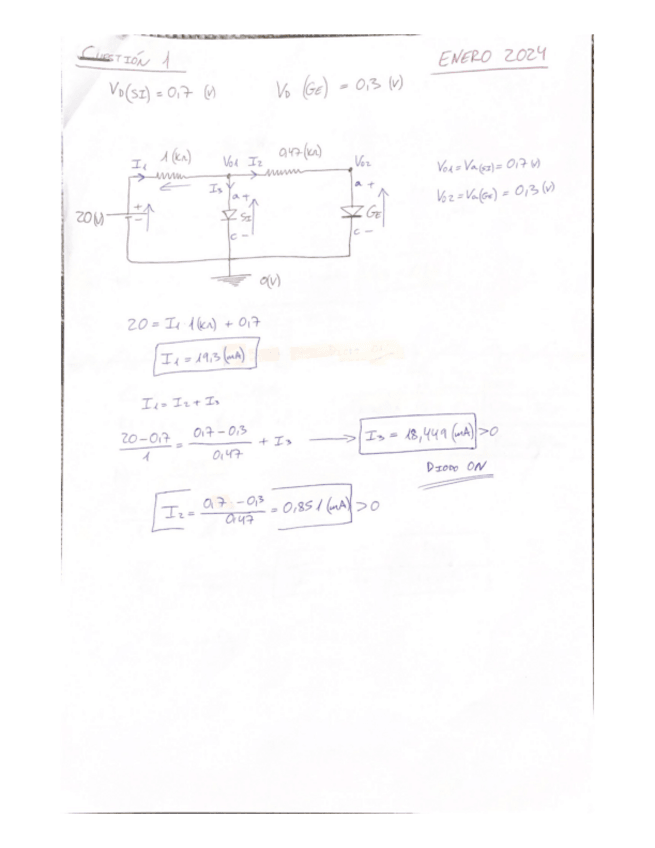 CUESTIÓN 1
ENERO 2024
VD(SI) = 0,7 (V)
VD (GE) = 0,3 (V)
I1 1(KΩ) V01 I2 0,47(KΩ) V02
I3
a + a +
20(V) + - SI GE
c - c -
0(V)
V01 = Va(SI) = 0,7 (V)
V02 = Va(GE) = 0,3 (V)
20 = I1 1(KΩ) + 0,7
I1 = 19,3 (mA)
I1 = I2 + I3
20-0,7 / 1 = 0,7-0,3 / 0,47 + I3 → I3 = 18,449 (mA) >0
DIODO ON
I2 = 0,7-0,3 / 0,47 = 0,851 (mA) >0